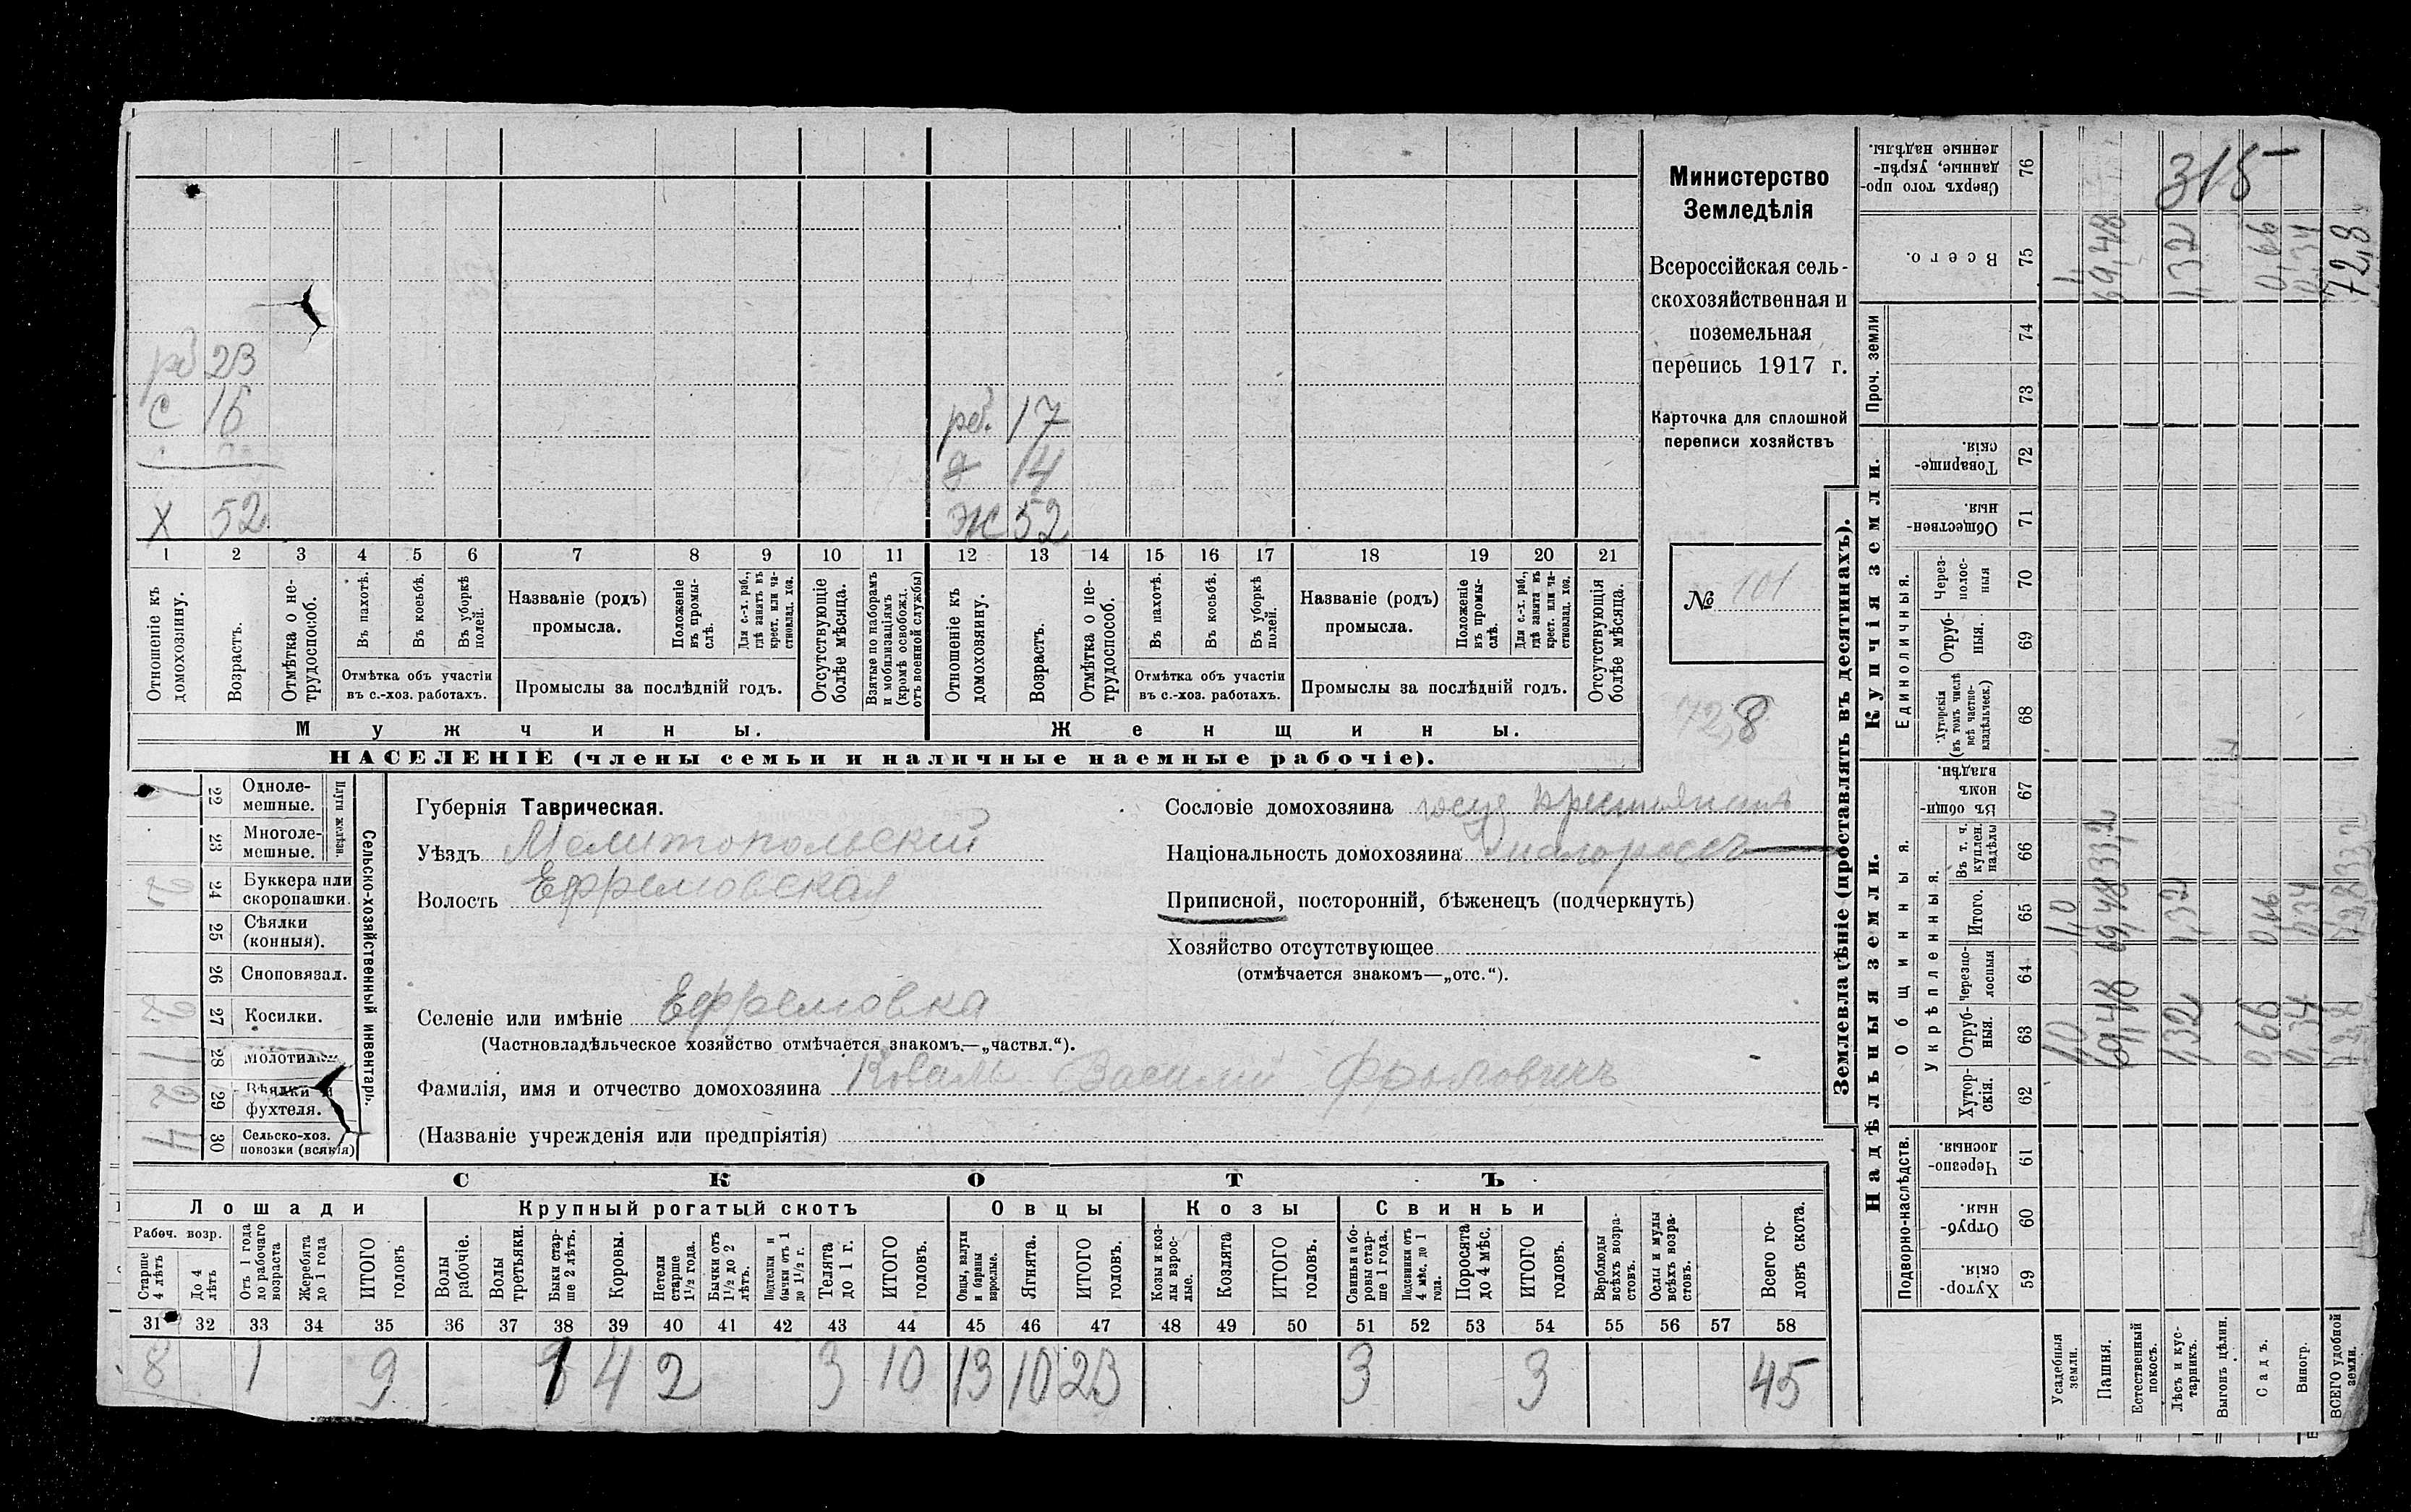 315-
рб 23
С 15
рб. 17
14
Х 52
Ж 52
1 2 3 4 5 6 7 8 9 10 11 12 13 14 15 16 17 18 19 20 21
Отношеніе къ домохозяину.
Возрастъ.
Отмѣтка о не-трудоспособ.
Въ пахотѣ.
Въ косьбѣ.
Въ уборкѣ полей.
Отмѣтка объ участіи
въ с.-хоз. работахъ.
Названіе (родъ)
промысла.
Положеніе въ промы-слѣ.
Для с.-х. раб., гдѣ занятъ въ крест. или ча-стновлад. хоз.
Промыслы за послѣдній годъ.
Отсутствующіе болѣе мѣсяца.
Взятые по наборамъ и мобилизаціямъ (кромѣ освобожд. отъ военной службы)
Отношеніе къ домохозяину.
Возрастъ.
Отмѣтка о не-трудоспособ.
Въ пахотѣ.
Въ косьбѣ.
Въ уборкѣ полей.
Отмѣтка объ участіи
въ с.-хоз. работахъ.
Названіе (родъ)
промысла.
Положеніе въ промы-слѣ.
Для с.-х. раб., гдѣ занята въ крест. или ча-стновлад. хоз.
Промыслы за послѣдній годъ.
Отсутствующія болѣе мѣсяца.
Мужчины.
Женщины.
НАСЕЛЕНІЕ (члены семьи и наличные наемные рабочіе).
Министерство
Земледѣлія
Всероссійская сель-
скохозяйственная и
поземельная
перепись 1917 г.
Карточка для сплошной
переписи хозяйствъ
№ 101
72,8
Сельско-хозяйственный инвентарь.
Плуги желѣзн.
22 Одноле-
мешные.
23 Многоле-
мешные.
24 Буккера или
скоропашки.
25 Сѣялки
(конныя).
26 Сноповязал.
27 Косилки.
28 Молотилки
29 Вѣялки и
фухтеля.
30 Сельско-хоз.
повозки (всякія)
Губернія Таврическая.
Уѣздъ Мелитопольскій
Волость Ефремовская
Селеніе или имѣніе Ефремовка
(Частновладѣльческое хозяйство отмѣчается знакомъ—„частвл.“).
Фамилія, имя и отчество домохозяина Коваль Василій Фроловичъ
(Названіе учрежденія или предпріятія)
Сословіе домохозяина крестьянинъ
Національность домохозяина Малороссъ
Приписной, посторонній, бѣженецъ (подчеркнуть)
Хозяйство отсутствующее
(отмѣчается знакомъ—„отс.“).
СКОТЪ
Лошади
Крупный рогатый скотъ
Овцы
Козы
Свиньи
Рабоч. возр.
Старше 4 лѣтъ
До 4 лѣтъ
Отъ 1 года до рабочаго возраста
Жеребята до 1 года
ИТОГО головъ
Волы рабочіе.
Волы третьяки.
Быки стар-ше 2 лѣтъ.
Коровы.
Нетели старше 1½ года.
Бычки отъ 1½ до 2 лѣтъ.
Подтелки и бычки отъ 1 до 1½ г.
Телята до 1 г.
ИТОГО головъ.
Овцы, валухи и бараны взрослые.
Ягнята.
ИТОГО головъ.
Козы и коз-лы взрос-лые.
Козлята
ИТОГО головъ.
Свиньи и бо-ровы стар-ше 1 года.
Подсвинки отъ 4 мѣс. до 1 года.
Поросята до 4 мѣс.
ИТОГО головъ.
Верблюды всѣхъ возра-стовъ.
Ослы и мулы всѣхъ возра-стовъ.
Всего го-ловъ скота.
31 32 33 34 35 36 37 38 39 40 41 42 43 44 45 46 47 48 49 50 51 52 53 54 55 56 57 58
8 1 9 1 4 2 3 10 13 10 23 3 3 45
Землевладѣніе (проставлять въ десятинахъ).
Надѣльныя земли.
Купчія земли.
Проч. земли
Подворно-наслѣдств.
Общинныя.
Укрѣпленныя.
Единоличныя.
59 Хутор-скія.
60 Отруб-ныя.
61 Черезпо-лосныя
62 Хутор-скія.
63 Отруб-ныя.
64 черезпо-лосныя
65 Итого.
66 Въ т. ч. куплен. надѣлы
67 Въ общи-номъ владѣн.
68 Хуторскія (въ томъ числѣ всѣ частно-владѣльческ.)
69 Отруб-ныя.
70 Через-полос-ныя
71 Обществен-ныя
72 Товарище-скія.
73
74
75 Всего.
76 Сверхъ того про-данные, укрѣп-ленные надѣлы.
Усадебныя земли. 1,0 1,0 1,
Пашня. 69,48 69,48 33,2 69,48
Естественный покосъ.
Лѣсъ и кус-тарникъ. 1,32 1,32 1,32
Выгонъ цѣлин.
Садъ. 0,66 0,66 0,66
Виногр. 0,34 0,34 0,34
ВСЕГО удобной земли. 72,8 72,8 33,2 72,8